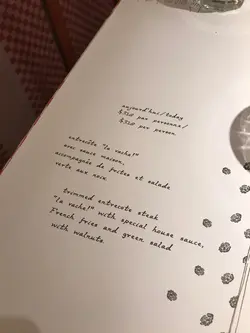 aujourd'hui/today
par personne/
per person
entrecôte "la vache!"
avec sauce maison,
accompagnée de frites et salade
verte aux noix
trimmed entrecote steak
"la vache!" with special house sauce,
French fries and green salad
with walnuts